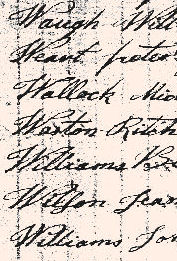 Waugh Will
Weant peter
Wallock Mic
Weston Ritch
Williams
Wilson Jean
Williams Jon